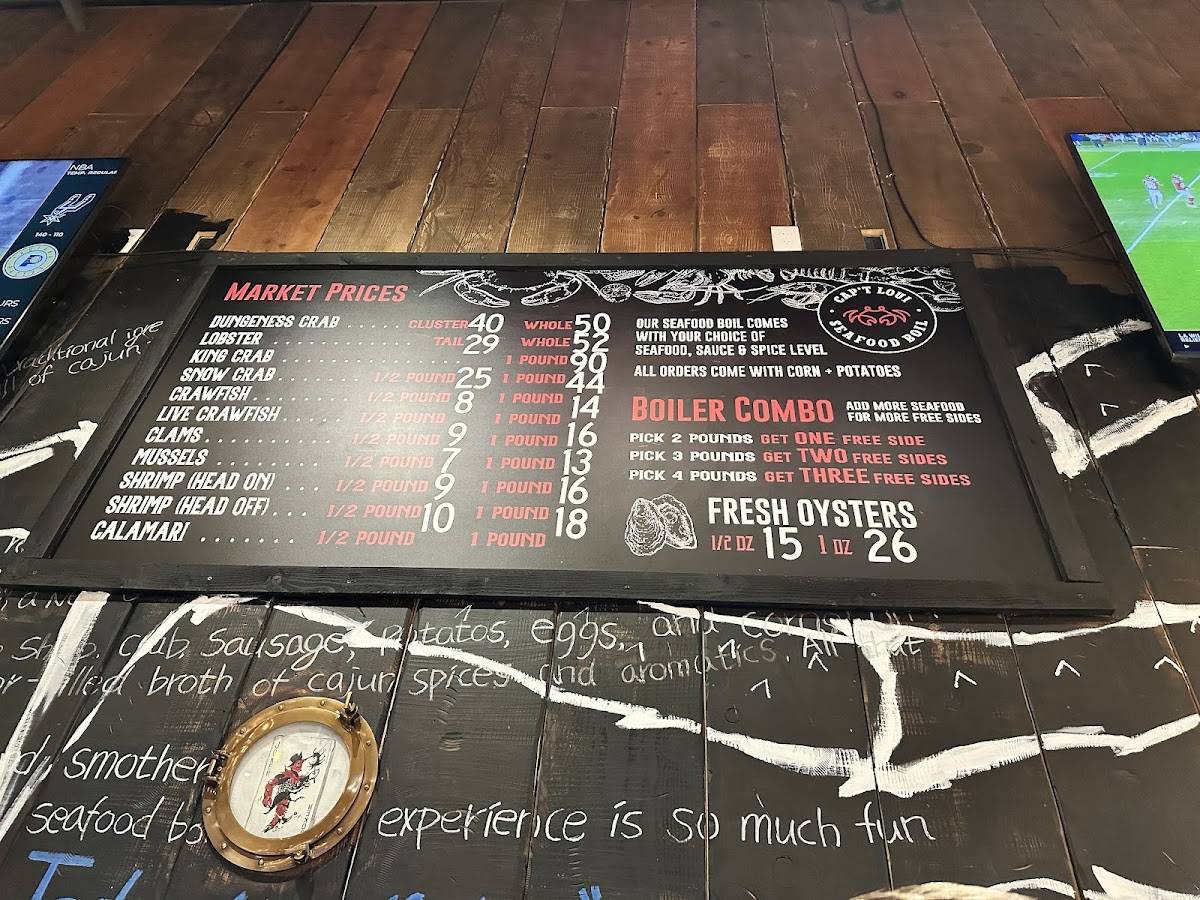 NBA
TEMP. REGULAR
140 - 110
MARKET PRICES
DUNGENESS CRAB ..... CLUSTER 40 WHOLE 50
LOBSTER TAIL 29 WHOLE 52
KING CRAB 1 POUND 90
SNOW CRAB ........ 1/2 POUND 25 1 POUND 44
CRAWFISH ......... 1/2 POUND 8 1 POUND 14
LIVE CRAWFISH ..... 1/2 POUND 1 POUND
CLAMS ............ 1/2 POUND 9 1 POUND 16
MUSSELS .......... 1/2 POUND 7 1 POUND 13
SHRIMP (HEAD ON) .... 1/2 POUND 9 1 POUND 16
SHRIMP (HEAD OFF) ... 1/2 POUND 10 1 POUND 18
CALAMARI ....... 1/2 POUND 1 POUND
CAP'T LOUI
SEAFOOD BOIL
OUR SEAFOOD BOIL COMES
WITH YOUR CHOICE OF
SEAFOOD, SAUCE & SPICE LEVEL
ALL ORDERS COME WITH CORN + POTATOES
BOILER COMBO ADD MORE SEAFOOD
FOR MORE FREE SIDES
PICK 2 POUNDS GET ONE FREE SIDE
PICK 3 POUNDS GET TWO FREE SIDES
PICK 4 POUNDS GET THREE FREE SIDES
FRESH OYSTERS
1/2 DZ 15 1 DZ 26
traditional
of cajun
crab, Sausage, Potatos, eggs, and
broth of cajun spices and aromatics. All
smother
seafood experience is so much fun